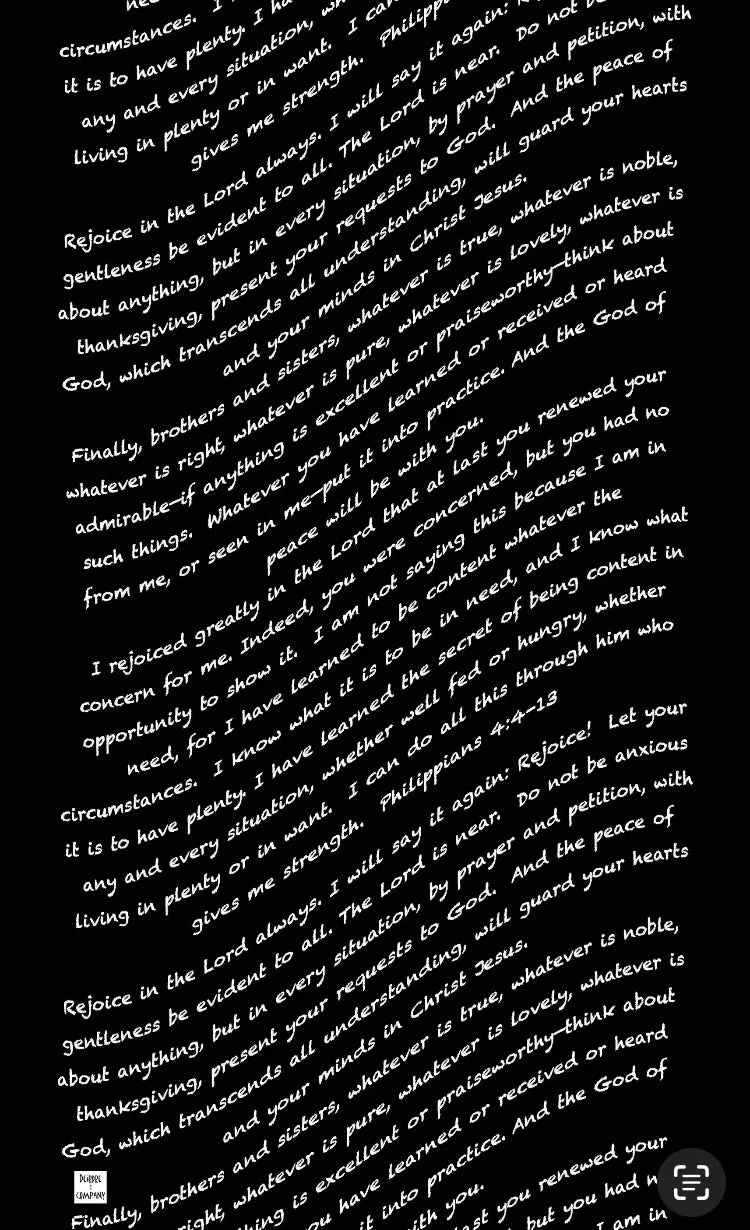 nee
circumstances. I
it is to have plenty. I ha
any and every situation, wh
living in plenty or in want. I can
gives me strength. Philipp
Rejoice in the Lord always. I will say it again: R
gentleness be evident to all. The Lord is near. Do not b
about anything, but in every situation, by prayer and petition, with
thanksgiving, present your requests to God. And the peace of
God, which transcends all understanding, will guard your hearts
and your minds in Christ Jesus.
Finally, brothers and sisters, whatever is true, whatever is noble,
whatever is right, whatever is pure, whatever is lovely, whatever is
admirable—if anything is excellent or praiseworthy—think about
such things. Whatever you have learned or received or heard
from me, or seen in me—put it into practice. And the God of
peace will be with you.
I rejoiced greatly in the Lord that at last you renewed your
concern for me. Indeed, you were concerned, but you had no
opportunity to show it. I am not saying this because I am in
need, for I have learned to be content whatever the
circumstances. I know what it is to be in need, and I know what
it is to have plenty. I have learned the secret of being content in
any and every situation, whether well fed or hungry, whether
living in plenty or in want. I can do all this through him who
gives me strength. Philippians 4:4-13
Rejoice in the Lord always. I will say it again: Rejoice! Let your
gentleness be evident to all. The Lord is near. Do not be anxious
about anything, but in every situation, by prayer and petition, with
thanksgiving, present your requests to God. And the peace of
God, which transcends all understanding, will guard your hearts
and your minds in Christ Jesus.
Finally, brothers and sisters, whatever is true, whatever is noble,
right, whatever is pure, whatever is lovely, whatever is
thing is excellent or praiseworthy—think about
ou have learned or received or heard
it into practice. And the God of
ith you.
last you renewed your
but you had n
I am in
DEIRDRE
:
COMPANY